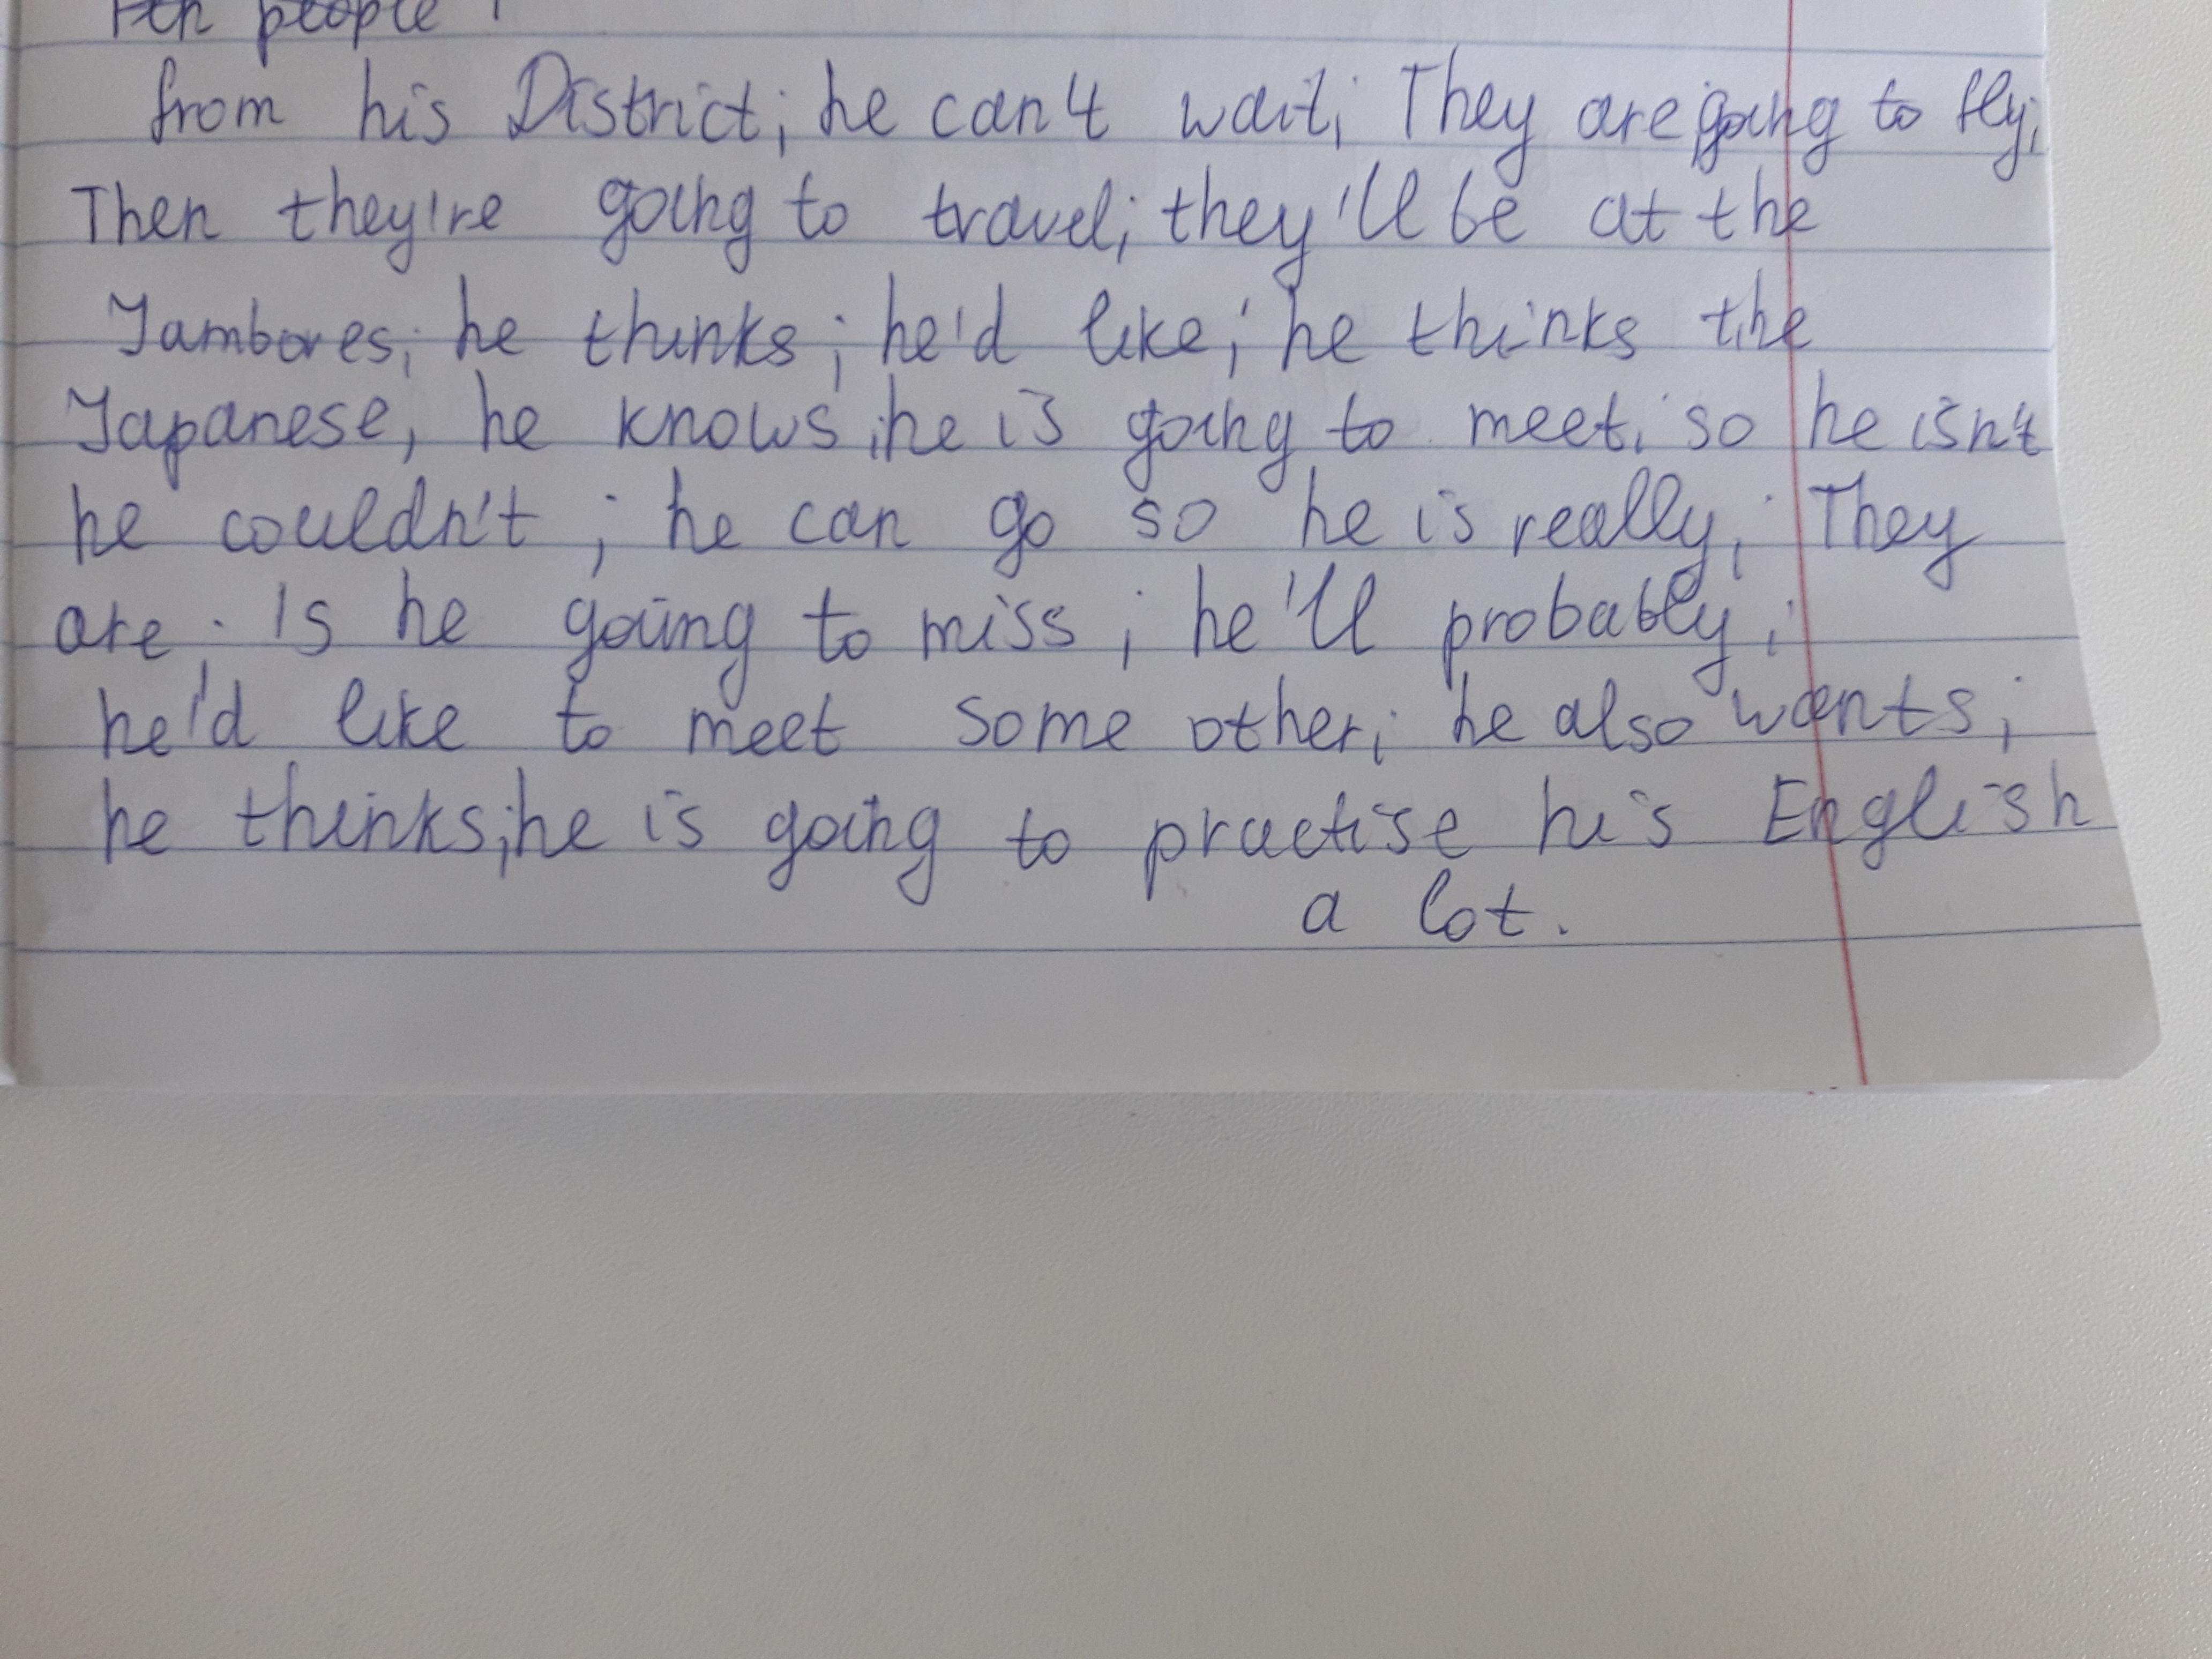 Ten people
from his District; he can't wait; They are going to fly;
Then they're going to travel; they'll be at the
Jambores; he thinks; he'd like; he thinks the
Japanese, he knows; he is going to meet; so he isn't
he couldn't; he can go so he is really; They
are; Is he going to miss; he'll probably;
he'd like to meet some other; he also wants;
he thinks; he is going to practise his English
a lot.